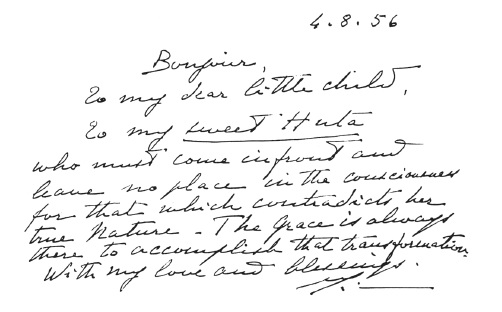 4.8.56
Bonjour,
To my dear little child,
To my sweet Huta
who must come in front and
leave no place in the consciousness
for that which contradicts her
true nature - The Grace is always
there to accomplish that transformation.
With my love and blessings.